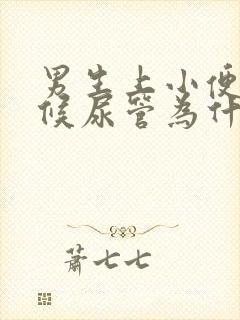 男生上小便
候尿管為什
蕭七七